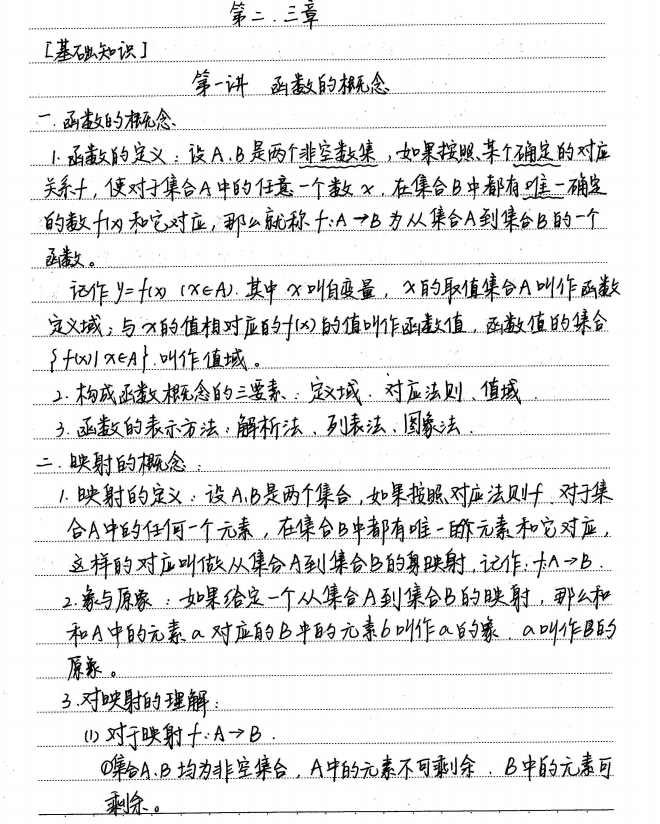 第二.三章
[基础知识]
第一讲 函数的概念
一.函数的概念.
1.函数的定义：设A.B是两个非空数集，如果按照某个确定的对应
关系f，使对于集合A中的任意一个数x，在集合B中都有唯一确定
的数f(x)和它对应，那么就称f:A→B为从集合A到集合B的一个
函数。
记作y=f(x) (x∈A).其中x叫自变量，x的取值集合A叫作函数
定义域；与x的值相对应的f(x)的值叫作函数值，函数值的集合
{f(x)|x∈A}.叫作值域。
2.构成函数概念的三要素：定义域.对应法则.值域.
3.函数的表示方法：解析法.列表法.图象法.
二.映射的概念：
1.映射的定义：设A.B是两个集合，如果按照对应法则f.对于集
合A中的任何一个元素，在集合B中都有唯一的元素和它对应，
这样的对应叫做从集合A到集合B的映射，记作:f:A→B.
2.象与原象：如果给定一个从集合A到集合B的映射，那么和
和A中的元素a对应的B中的元素b叫作a的象.a叫作B的
原象。
3.对映射的理解：
(1)对于映射f:A→B.
①集合A.B均为非空集合，A中的元素不可剩余.B中的元素可
剩余。